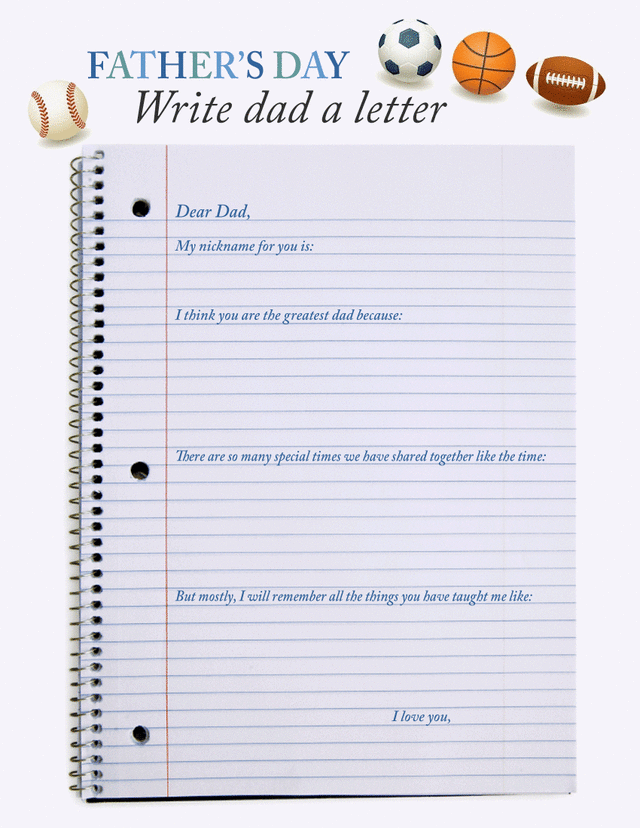 FATHER'S DAY
Write dad a letter
Dear Dad,
My nickname for you is:
I think you are the greatest dad because:
There are so many special times we have shared together like the time:
But mostly, I will remember all the things you have taught me like:
I love you,